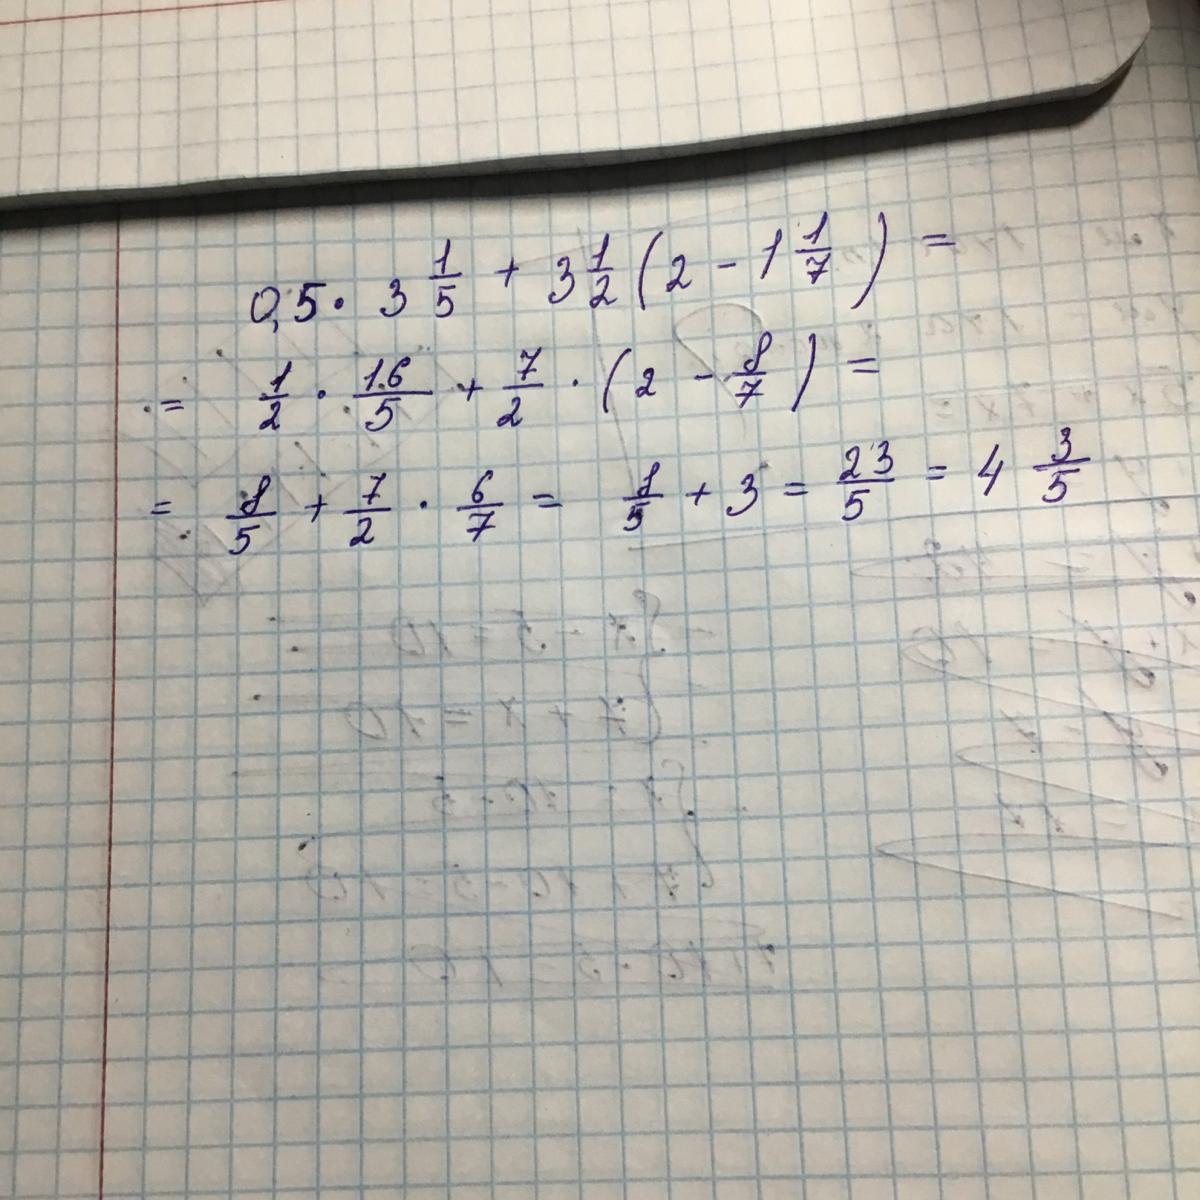 0,5 · 3 1/5 + 3 1/2 (2 - 1 1/7) =
= 1/2 · 16/5 + 7/2 · (2 - 8/7) =
= 8/5 + 7/2 · 6/7 = 8/5 + 3 = 23/5 = 4 3/5